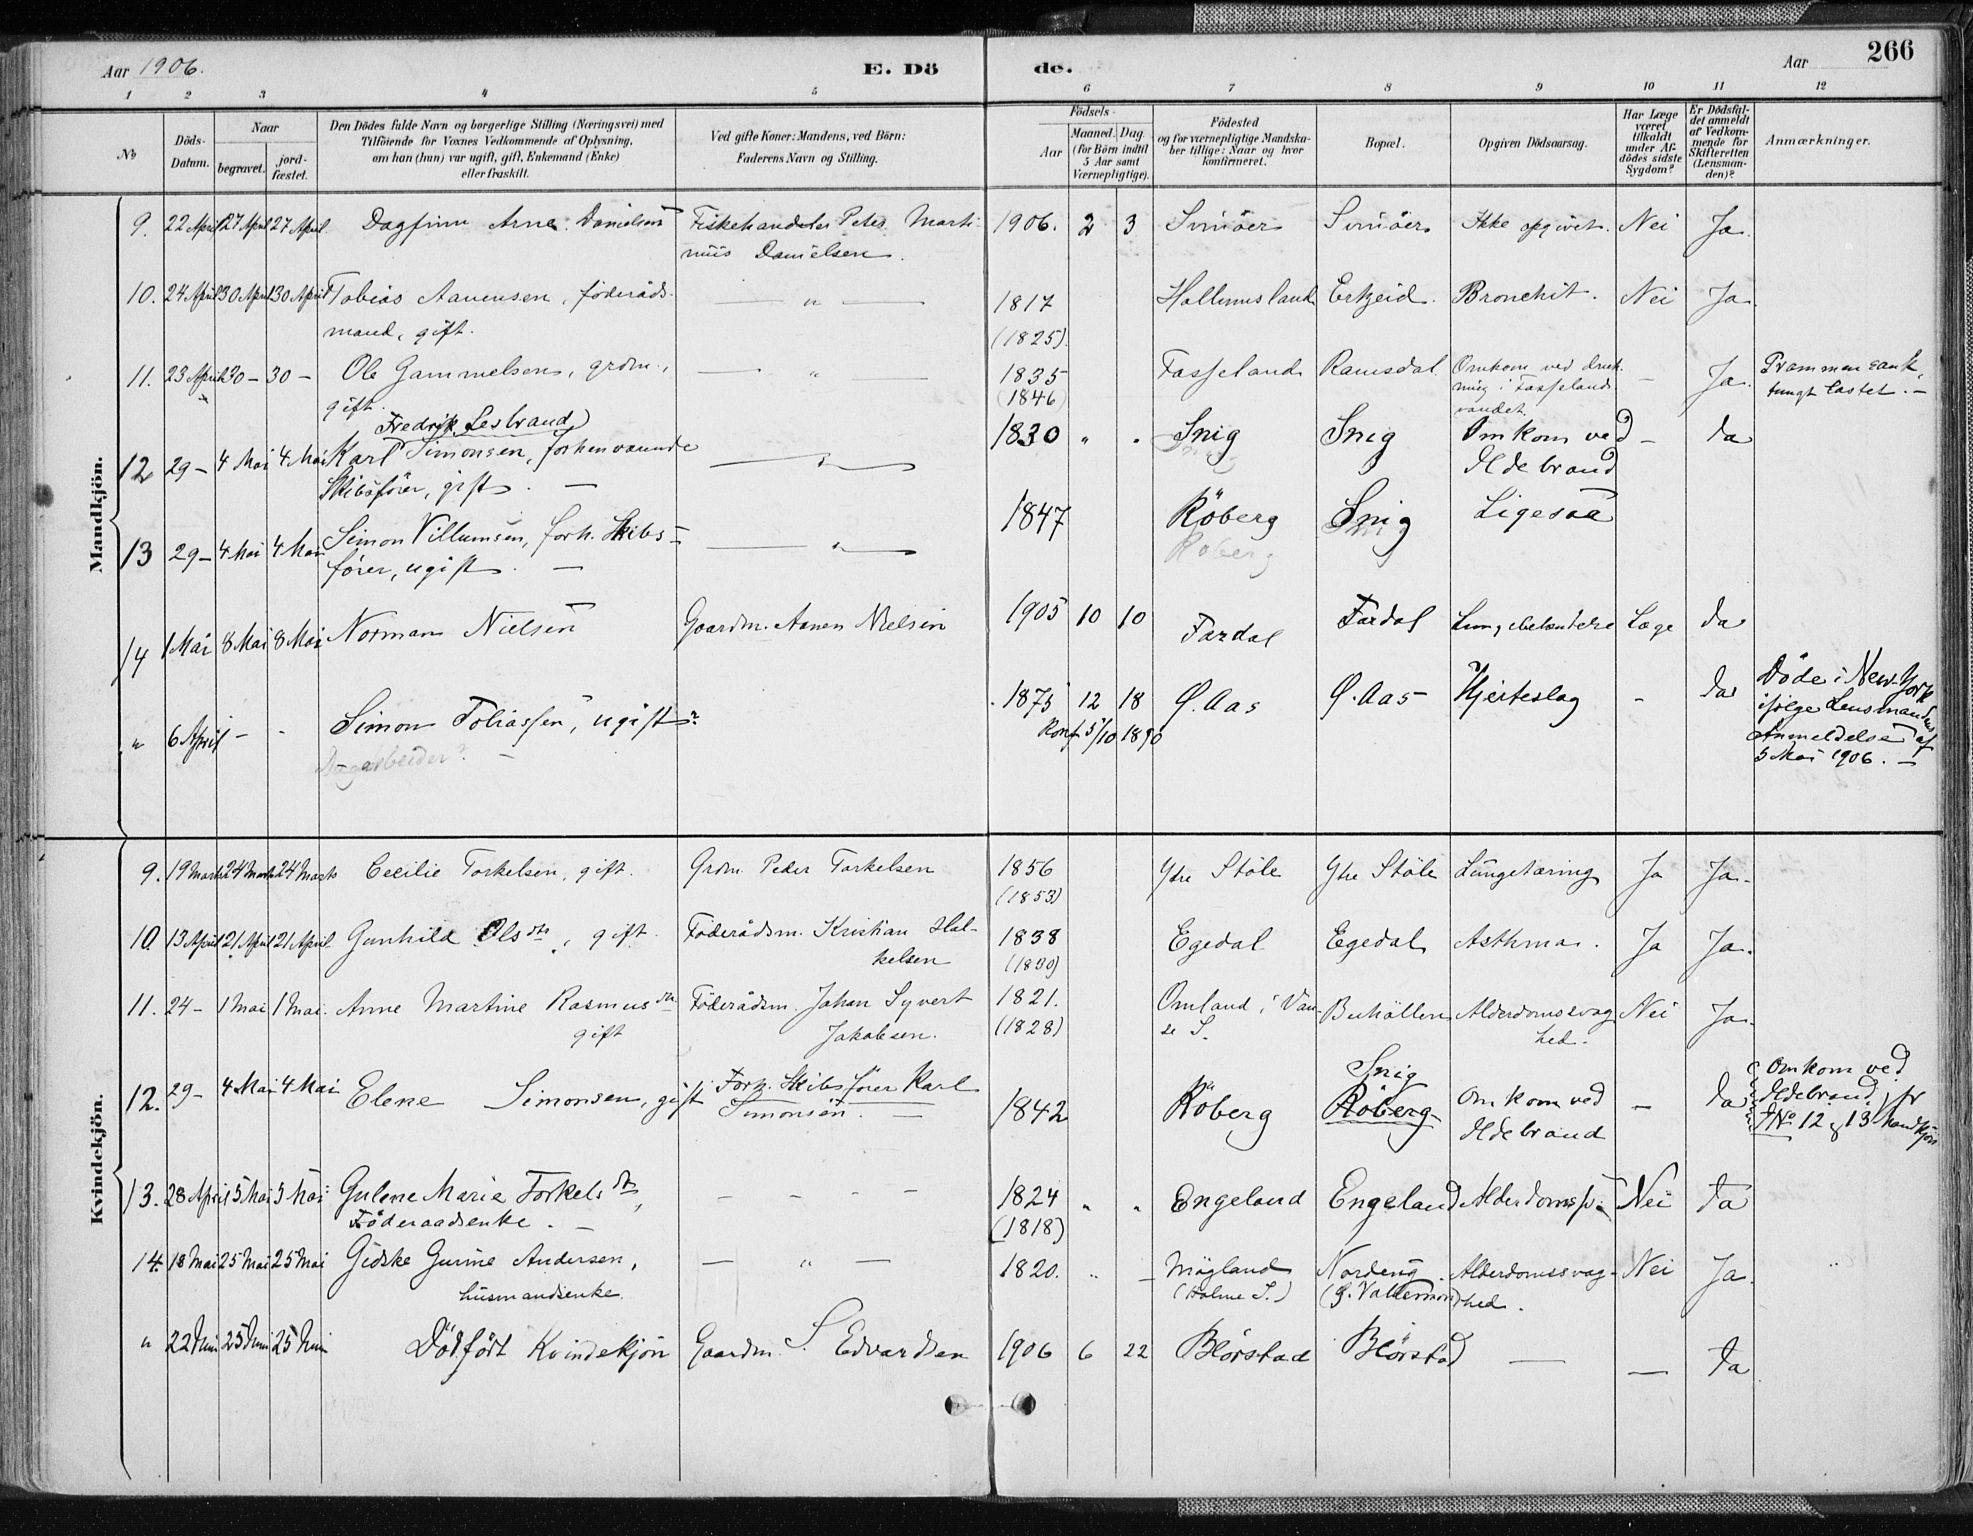 Aar 1906. E. Dö de. Aar 266
1 2 3 4 5 6 7 8 9 10 11 12
No
Döds-Datum.
Naar
begravet.
jord-fæstet.
Den Dödes fulde Navn og borgerlige Stilling (Næringsvei) med
Tilföiende for Voxnes Vedkommende af Oplysning,
om han (hun) var ugift, gift, Enkemand (Enke)
eller fraskilt.
Ved gifte Koner: Mandens, ved Börn:
Faderens Navn og Stilling.
Födsels-
Aar
Maaned. Dag.
(for Börn indtil
5 Aar samt
Værnepligtige).
Födested
og for værnepligtige Mandska-
ber tillige: Naar og hvor
konfirmeret.
Bopæl.
Opgiven Dödsaarsag.
Har Læge
været
tilkaldt
under Af-
dödes sidste
Sygdom?
Er Dödsfal-
det anmeldt
af Vedkom-
mende for
Skifteretten
(Lensman-
den)?
Anmærkninger.
Mandkjön.
9. 22 April 27 April 27 April Dagfinn Arne Danielsen Fiskehandeler Peter Marti- 1906. 2 3 Svinöer Svinöer Ikke opgivet. Nei Ja.
nius Danielsen.
10. 24 April 30 April 30 April Tobias Aanensen, föderåds- — " — 1817 Hallumsland Erkjeid. Bronchit. Nei Ja.
mand, gift. (1825).
11. 23 April 30 — 30 — Ole Gammelsen, grdm., — " — 1835 Fasseland Ramsdal Omkom ved druk- — Ja. Prammen sank,
gift. (1846) ning i Fasselands- tungt lastet. —
vandet.
Fredrik Lesbrand
12 29 — 4 Mai 4 Mai Karl Simonsen, forhenværende — " — 1830 " " Snig Snig Omkom ved — Ja
Skibsförer, gift. — Ildebrand
13 29 — 4 Mai 4 Mai Simon Villumsen, forh. Skibs- — " — 1847 Röberg Snig Ligesaa
förer, ugift. — Roberg
14 1 Mai 8 Mai 8 Mai Norman Nielsen Gaardm. Aanen Nielsen 1905 10 10 Fardal Fardal Lungebetændelse Læge Ja
" 6 April — - Simon Tobiassen, ugift? 1875 12 18 Ö. Aas Ö. Aas Hjerteslag - Ja Döde i New-York
Dagarbeider? — Konf 5/10 1890 ifölge Lensmandens
Anmeldelse af
5 Mai 1906. —
Kvindekjön.
9. 19 Marts 24 Marts 24 Marts Cecilie Torkelsen, gift. Grdm. Peder Torkelsen 1856 Ytre Stöle Ytre Stöle Lungetæring Ja Ja.
(1853)
10. 13 April 21 April 21 April Gunhild Olsdtr, gift. Föderådsm. Kristian Hal- 1838 Egedal Egedal Asthma. Ja Ja.
kelsen (1830)
11. 24 — 1 Mai 1 Mai. Anne Martine Rasmusdtr Föderådsm. Johan Syvert 1821. Omland i Van- Buhöllen Alderdomssvag- Nei Ja.
gift Jakobsen. (1828) se S. hed.
12. 29 — 4 Mai 4 Mai Elene Simonsen, gift Forh. Skibsförer Karl 1842 Röberg Snig Omkom ved — Ja Omkom ved
Simonsen. — Röberg Ildebrand Ildebrand, jfr
No. 12 og 13 Mandkjön
13. 28 April 5 Mai 5 Mai Gulene Marie Torkelsdtr, - - - - 1824 " " Engeland Engeland Alderdomssv. Nei Ja
Föderaadsenke. — (1818)
14. 18 Mai 25 Mai 25 Mai Gidske Gurine Andersen, — " — 1820. " — Mögland Nordeng Alderdomssvag- Nei Ja. "
husmandsenke. (Holme S.) (g. Valdemon) hed.
" 22 Juni 25 Juni 25 Juni Dödfödt Kvindekjön Gaardm. S. Edvardsen 1906 6 22 Blörstad Blörstad — — Ja